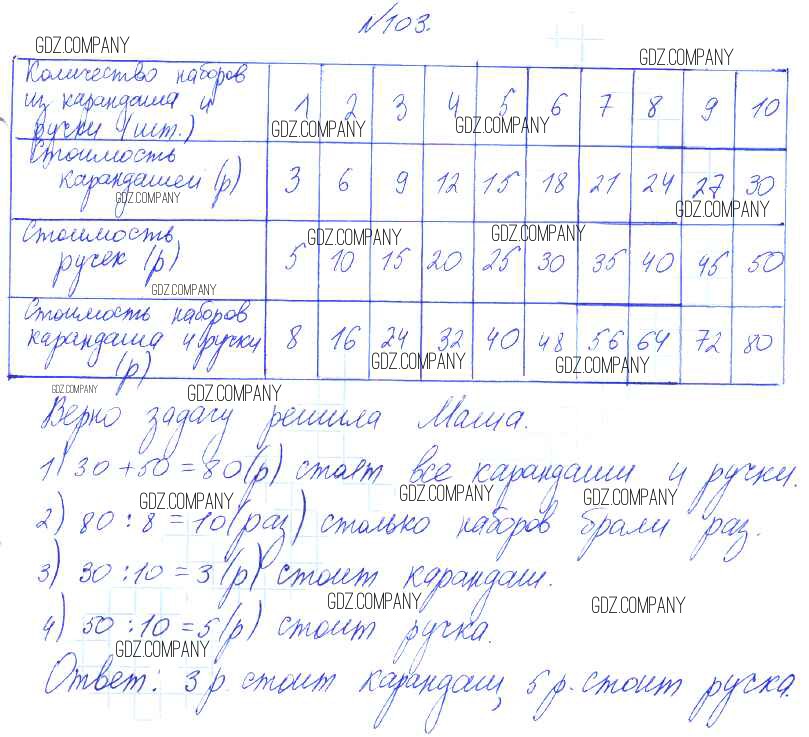 №103.
GDZ.COMPANY
GDZ.COMPANY
Количество наборов
из карандаша и
ручки (шт.) 1 2 3 4 5 6 7 8 9 10
GDZ.COMPANY GDZ.COMPANY
Стоимость
карандашей (р) 3 6 9 12 15 18 21 24 27 30
GDZ.COMPANY GDZ.COMPANY
Стоимость
ручек (р) 5 10 15 20 25 30 35 40 45 50
GDZ.COMPANY GDZ.COMPANY
GDZ.COMPANY
Стоимость наборов
карандаша и ручки
(р) 8 16 24 32 40 48 56 64 72 80
GDZ.COMPANY GDZ.COMPANY
GDZ.COMPANY GDZ.COMPANY
Верно задачу решила Маша.
1) 30 + 50 = 80 (р) стоят все карандаши и ручки.
GDZ.COMPANY GDZ.COMPANY GDZ.COMPANY
2) 80 : 8 = 10 (раз) столько наборов брали раз.
3) 30 : 10 = 3 (р) стоит карандаш.
GDZ.COMPANY GDZ.COMPANY
4) 50 : 10 = 5 (р) стоит ручка.
GDZ.COMPANY
Ответ: 3 р. стоит карандаш, 5 р. стоит ручка.